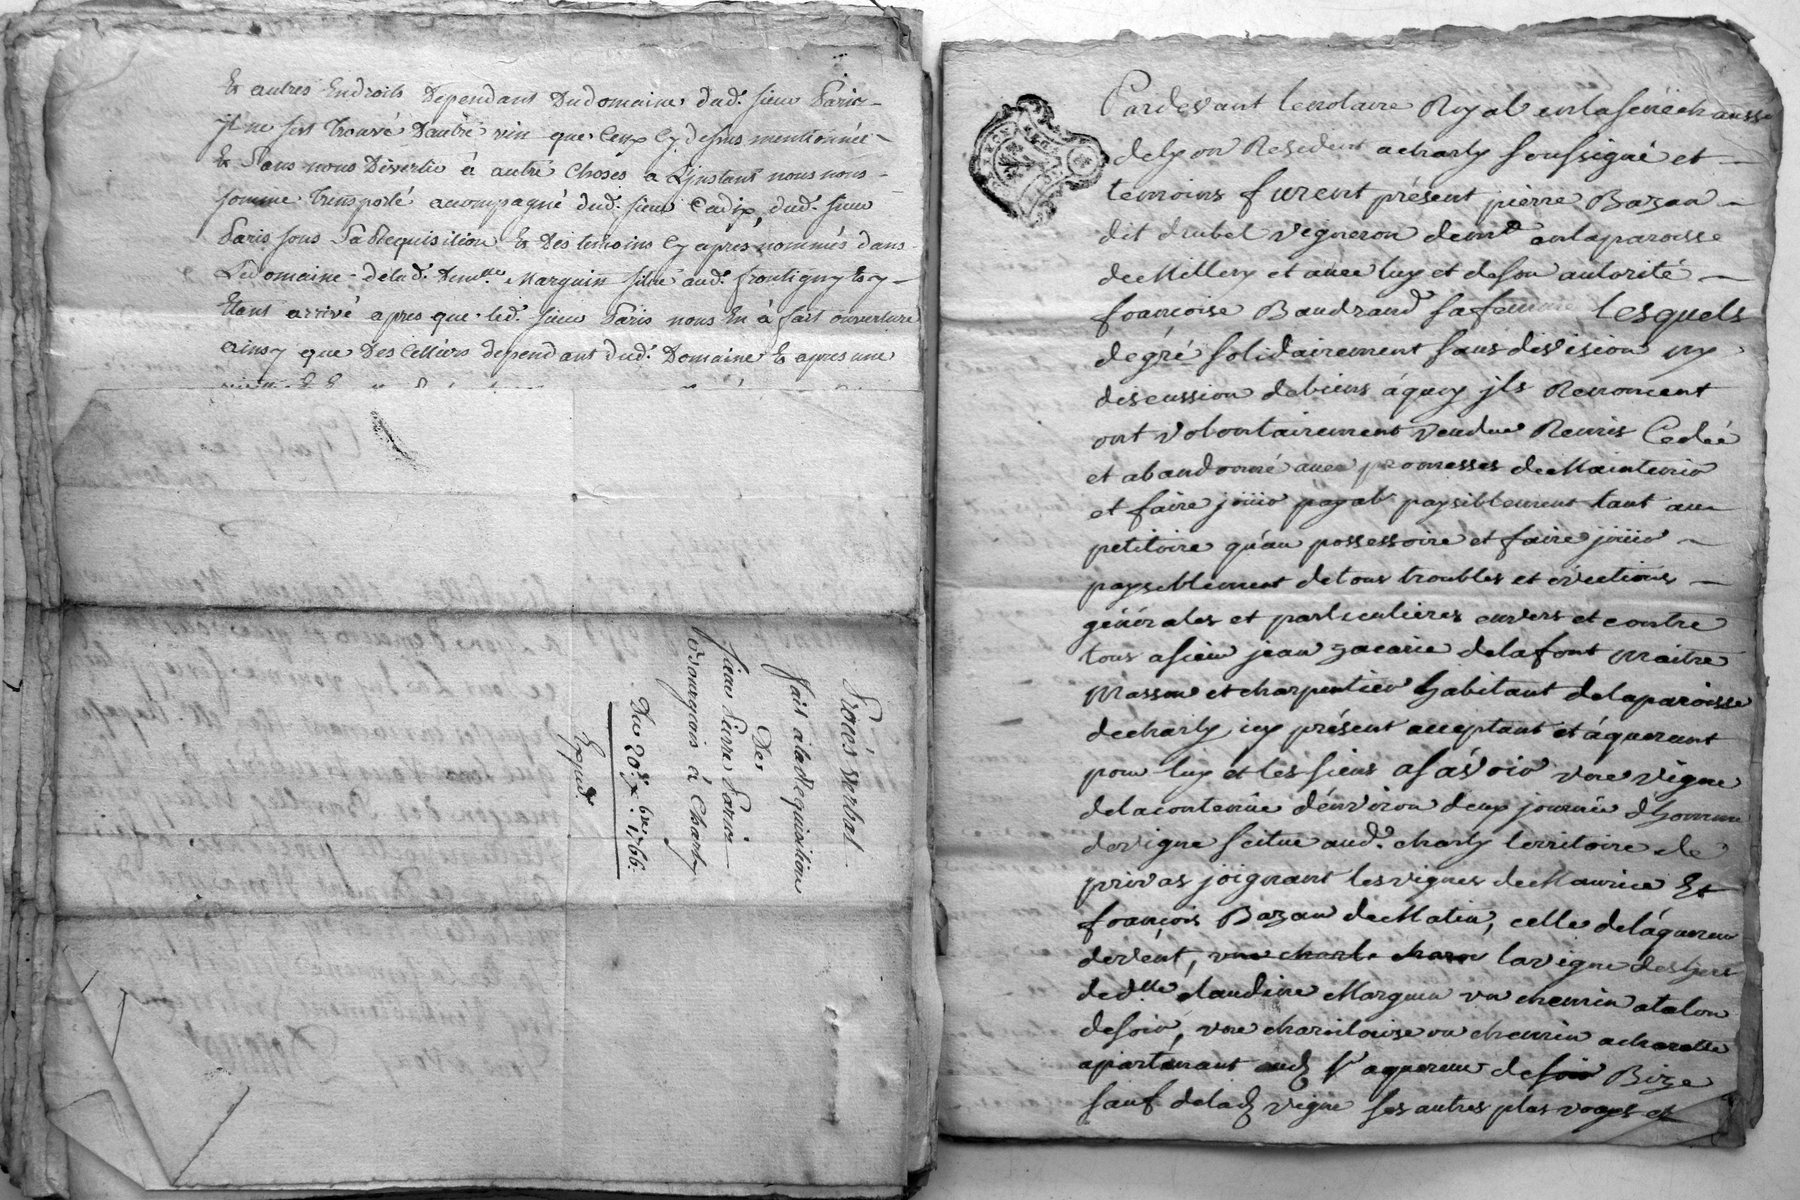 Et autres Endroits Dependant Dudomaine dud. sieur Paris
Il ne sest Trouvé Dautre vin que Ceux Cy dessus mentionnée
Et Sans nous Divertir à autre Choses a L'instant nous nous
somme Transporté acompagné dud. sieur Cadix, dud. sieur
Paris sous Sa Requisition Et Des temoins Cy après nommés dans
Le Domaine de lad. Demlle. Marguin situé aud. frontigny Et y
Etant arrivé apres que led. sieur Paris nous En à fait ouverture
ainsy que Des Celliers dependant dud. Domaine Et apres une
Procès verbal
fait à la Requisition
Des
sieur Pierre Paris
Bourgeois à Charly
Du 20. Xbre 1766.
Expedé.
Pardevant le notaire Royal en la sénéchaussé
de lyon Resident a charly soussigné et
temoins furent présent pierre Bazan
dit drubel vigneron demt. en la paroisse
de Millery et avec luy et de son autorité
françoise Baudrand sa femme lesquels
de gré solidairement sans division ny
discussion de biens áquoy jls Renoncent
ont volontairement vendue Remis Cedée
et abandonné avec promesses de Maintenir
et faire joüir payab paysiblement tant au
petitoire qu'au possessoire et faire joüir
paysiblement de tous troubles et évictions
générales et particulières envers et contre
tous a sieur jean zacarie delafont Maitre
Masson et charpentier habitant de la paroisse
de charly icy présent acceptant et áquerant
pour luy et les siens aSávoir une vigne
de la contenüe d'énviron deux journée d'homme
de vigne scitue aud. charly territoire de
privas joignant les vignes de Maurice Et
françois Bazan de Matin, celle de l'áquereur
de vent, une charle charer la vigne des hers
de dlle. claudine Marguin un chemin a talon
de soir, une charoitoise ou chemin a charette
apartenant aud sr aquereur de soir Bize
sauf de lad vigne ses autres plus vrayes et